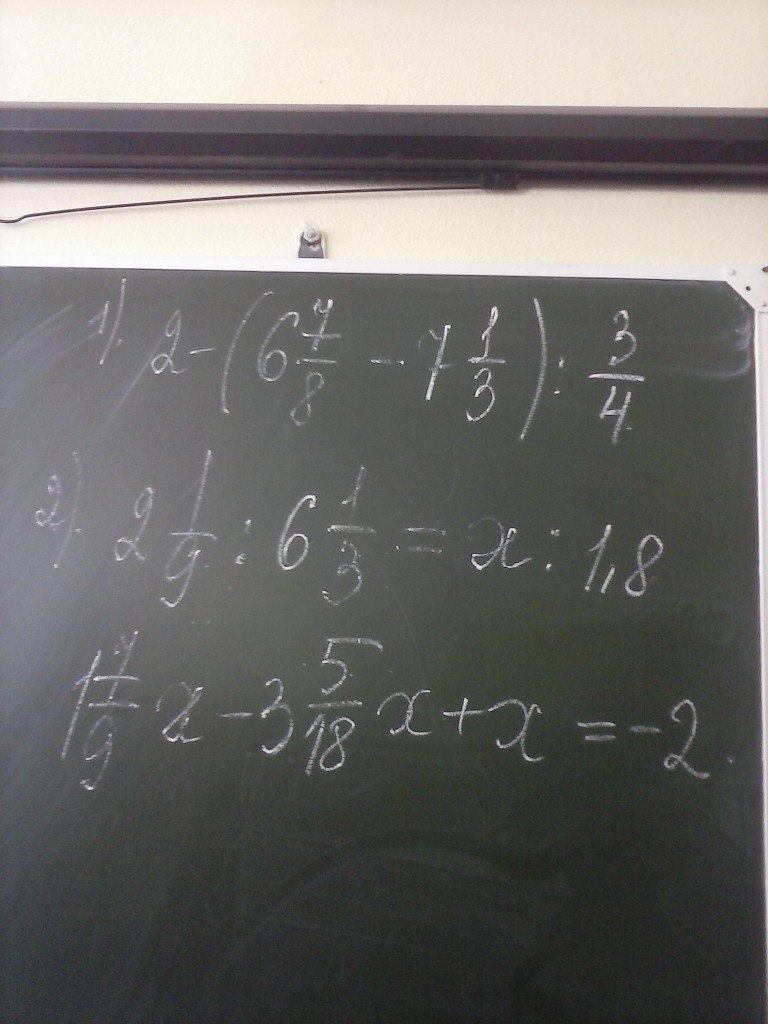 1). 2 - (6 7/8 - 7 1/3) : 3/4
2). 2 1/9 : 6 1/3 = x : 1,8
1 7/9 x - 3 5/18 x + x = -2.